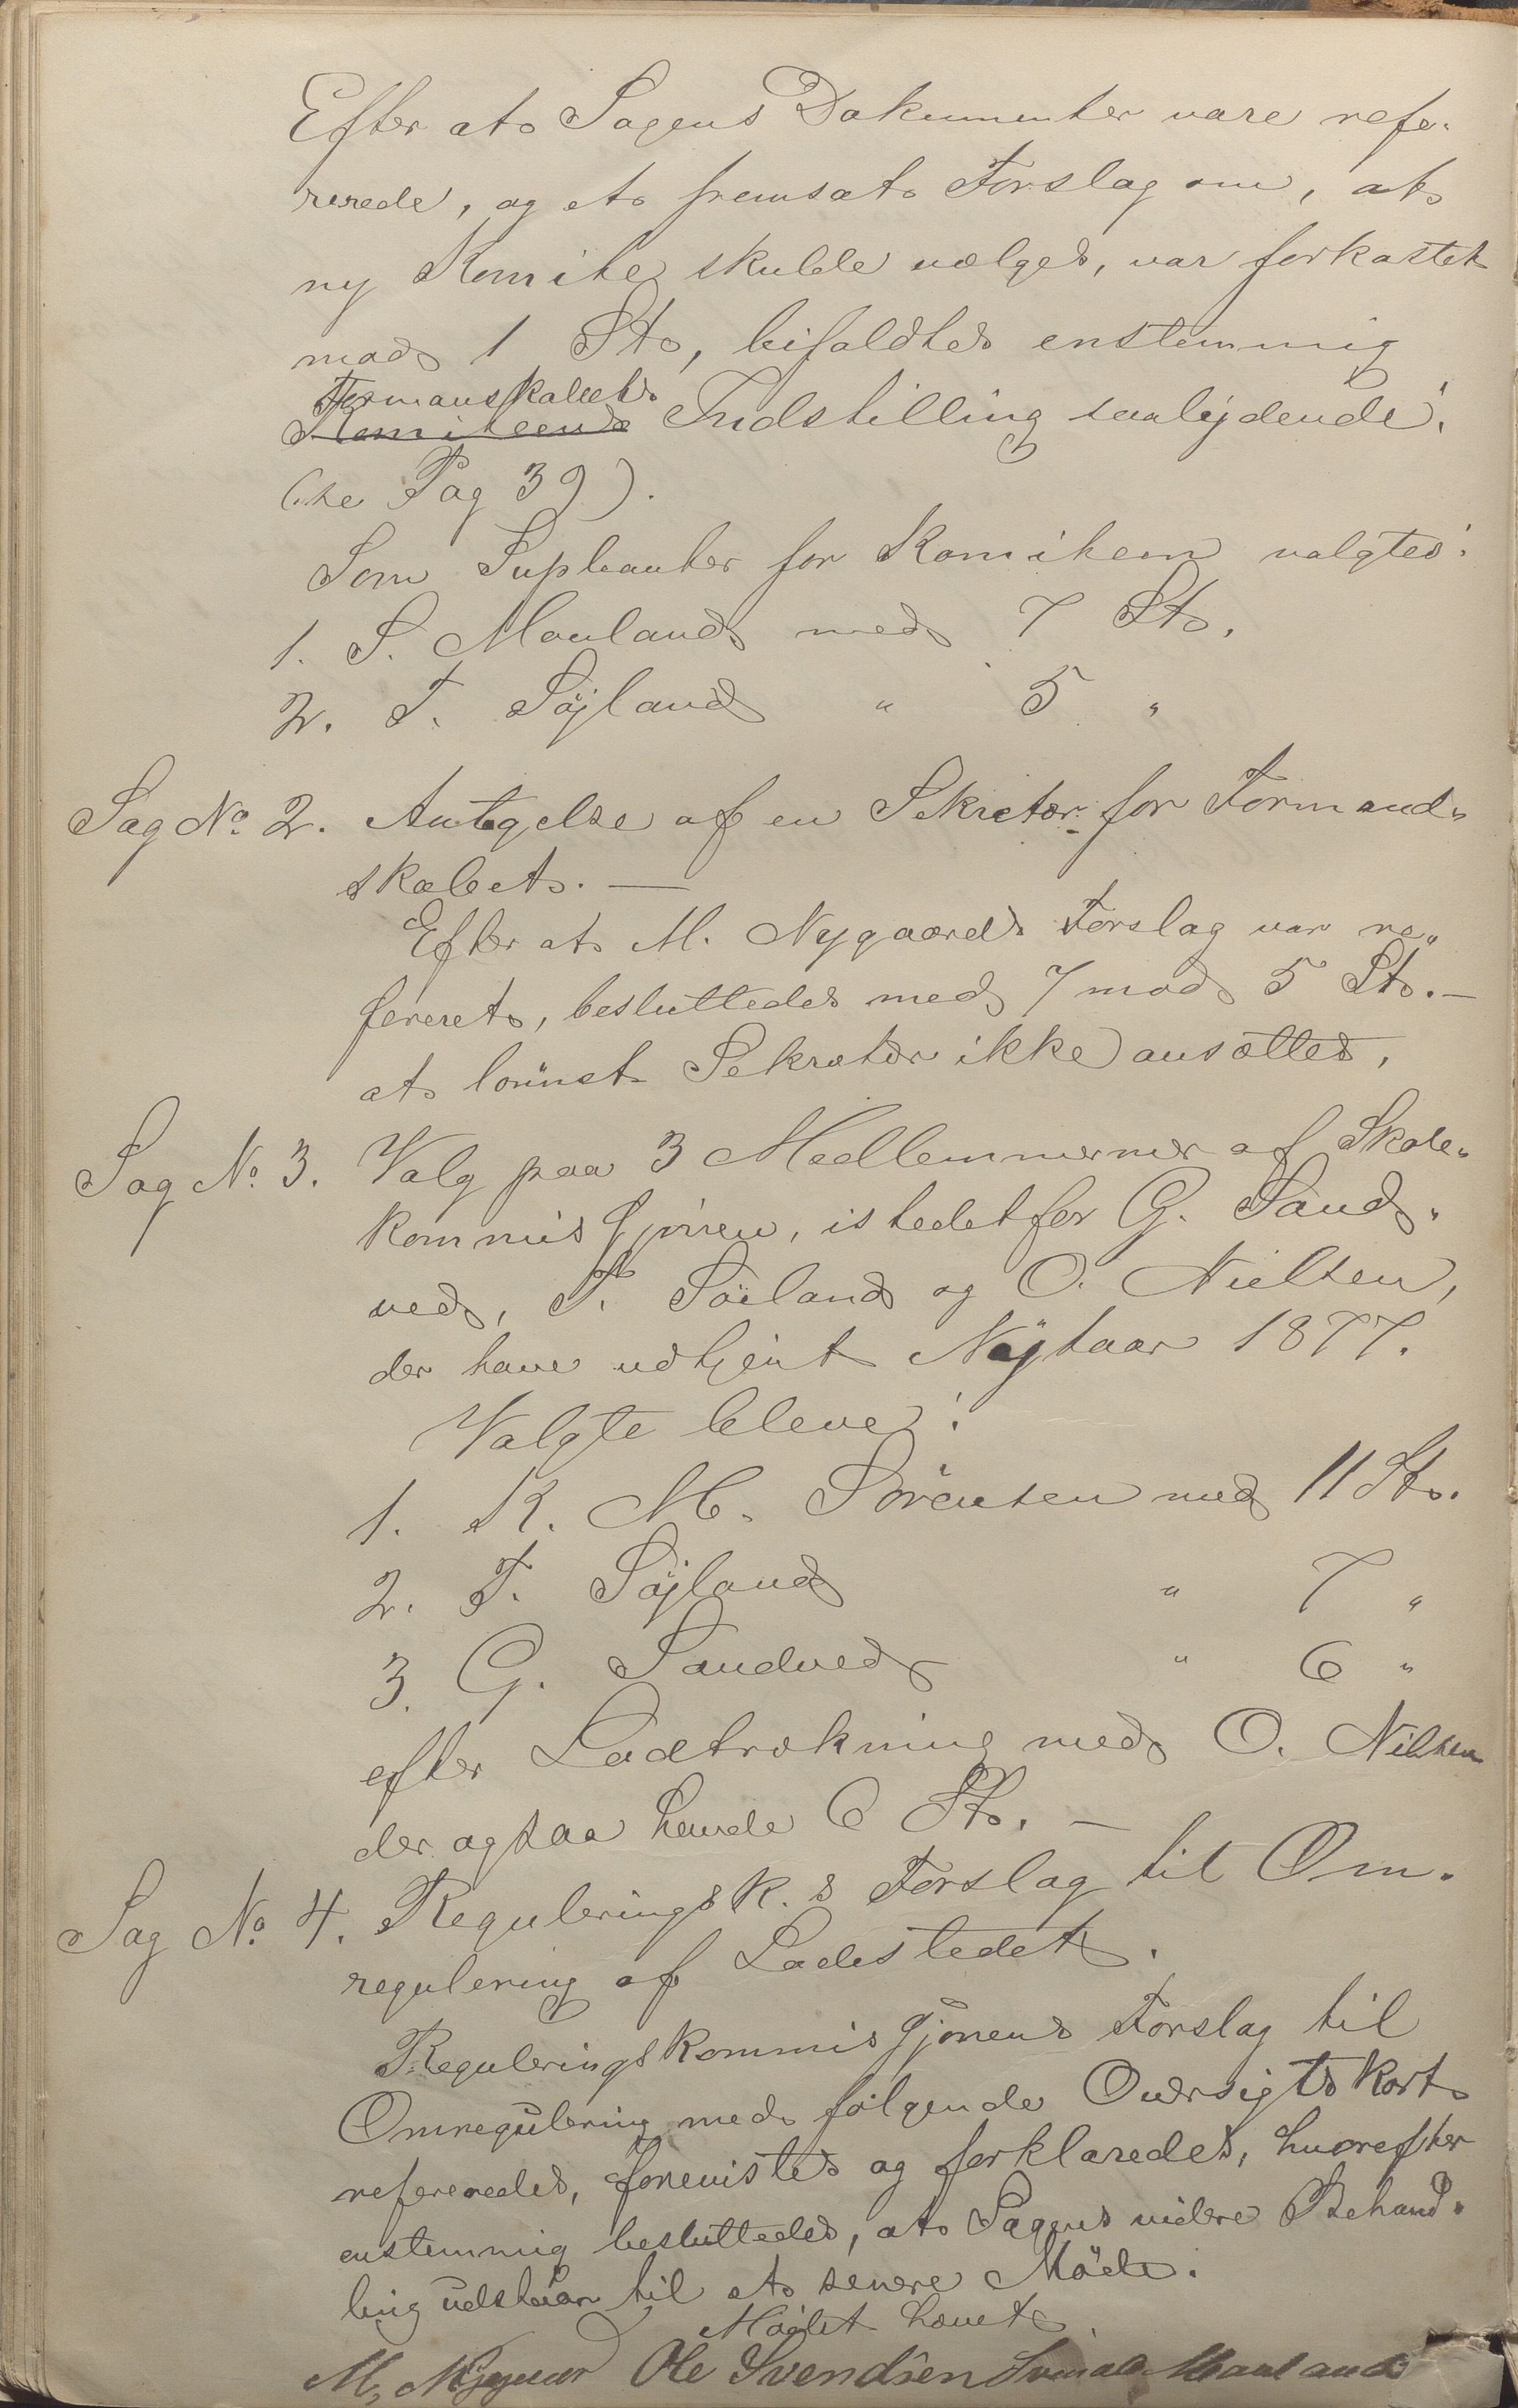 Efter at Sagens Dokumenter vare refe-
rerede, og et fremsat Forslag om, at
ny Komite skulde vælges, var forkastet
mod 1 St, bifaldtes enstemmig
Formanskabets
Komiteens Indstilling saalydende:
(se Pag 39).
Som Supleanter for Komiteen valgtes:
1. S. Mauland med 7 St.
2. T. Søjland " 5 "
Sag No 2. Antagelse af en Sekretær for Formand-
skabet. —
Efter at M. Nygaards Forslag var re-
fereret, besluttedes med 7 mod 5 St. —
at lønnet Sekretær ikke ansættes.
Sag No. 3. Valg paa 3 Medlemmerner af Skole-
kommissjonen, istedetfor G. Sand-
ved, T. Søiland og O. Nielsen,
der have udtjent Nøjtaar 1877.
Valgte bleve:
1. K. M. Sørensen med 11 St.
2. T. Søjland " 7 "
3. G. Sandved " 6 "
efter Lodtrækning med O. Nilsen
der ogsaa havde 6 St. —
Sag No. 4. Regulerings K.s Forslag til Om-
regulering af Ladestedet.
Reguleringskommissjonens Forslag til
Omregulering med følgende Oversigtskort
refereredes, forevistes og forklaredes, hvorefter
enstemmig besluttedes, at Sagens videre Behand-
ling udstaar til et senere Møde.
Mødet hævet.
M. Nygaard Ole Svendsen Svend Mauland